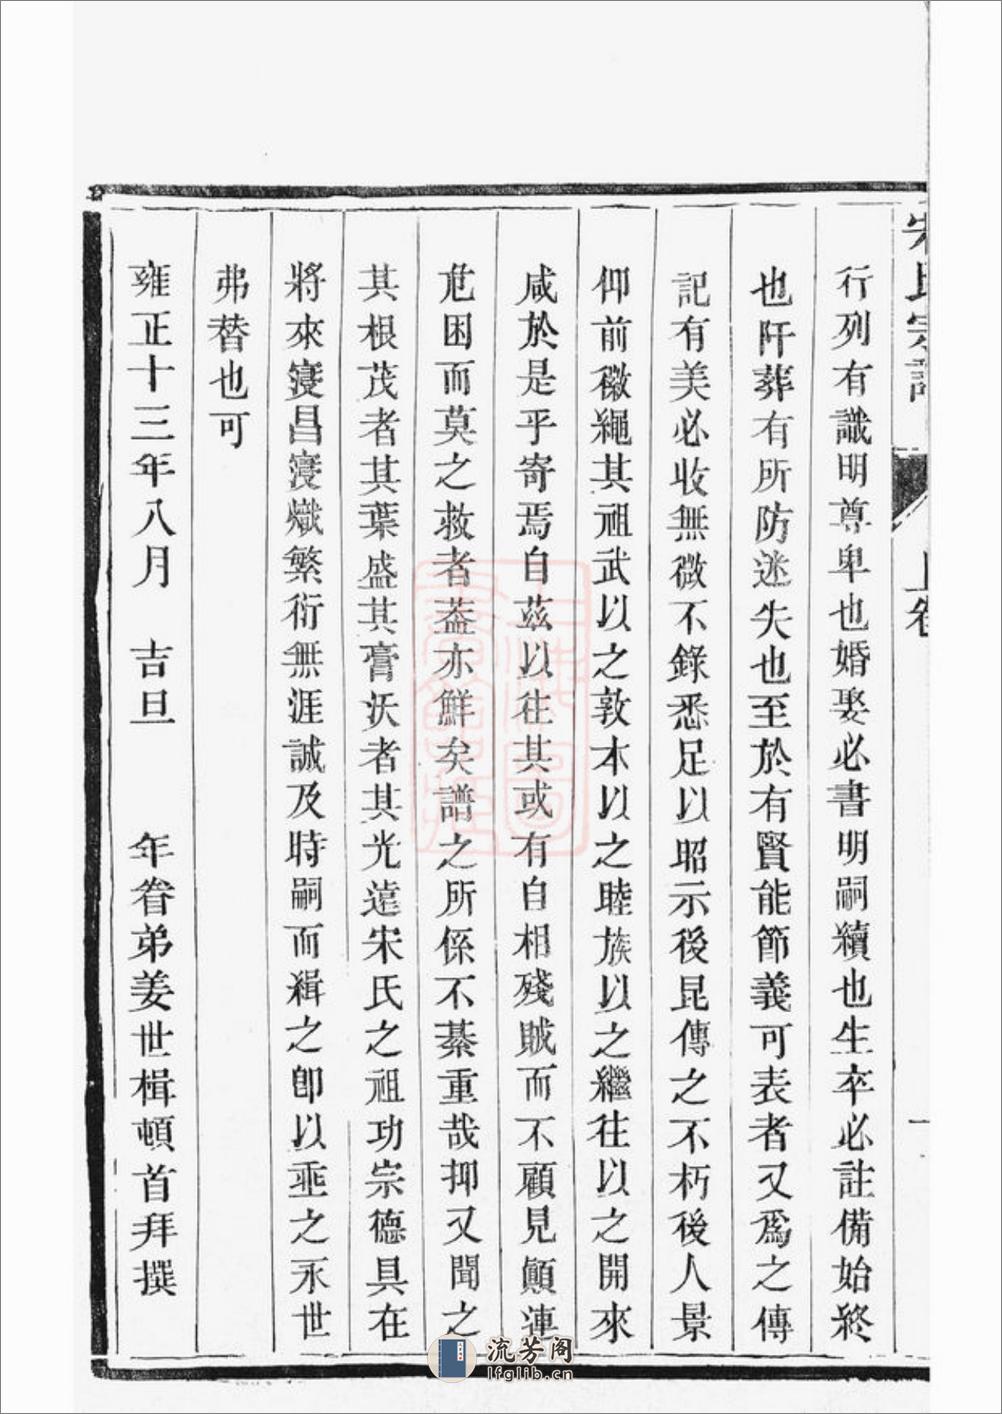 宋氏宗譜
上卷
一
行列有譏明尊卑也婚娶必書明嗣續也生卒必註備始終
也阡葬有所防迷失也至於有賢能節義可表者又爲之傳
記有美必收無微不錄悉足以昭示後昆傳之不朽後人景
仰前徽繩其祖武以之敦本以之睦族以之繼往以之開來
咸於是乎寄焉自茲以往其或有自相殘賊而不顧見顚連
危困而莫之救者蓋亦鮮矣譜之所係不綦重哉抑又聞之
其根茂者其葉盛其膏沃者其光遠宋氏之祖功宗德具在
將來寖昌寖熾繁衍無涯誠及時嗣而緝之卽以垂之永世
弗替也可
雍正十三年八月 吉旦 年眷弟姜世楫頓首拜撰
流芳阁
lfglib.cn